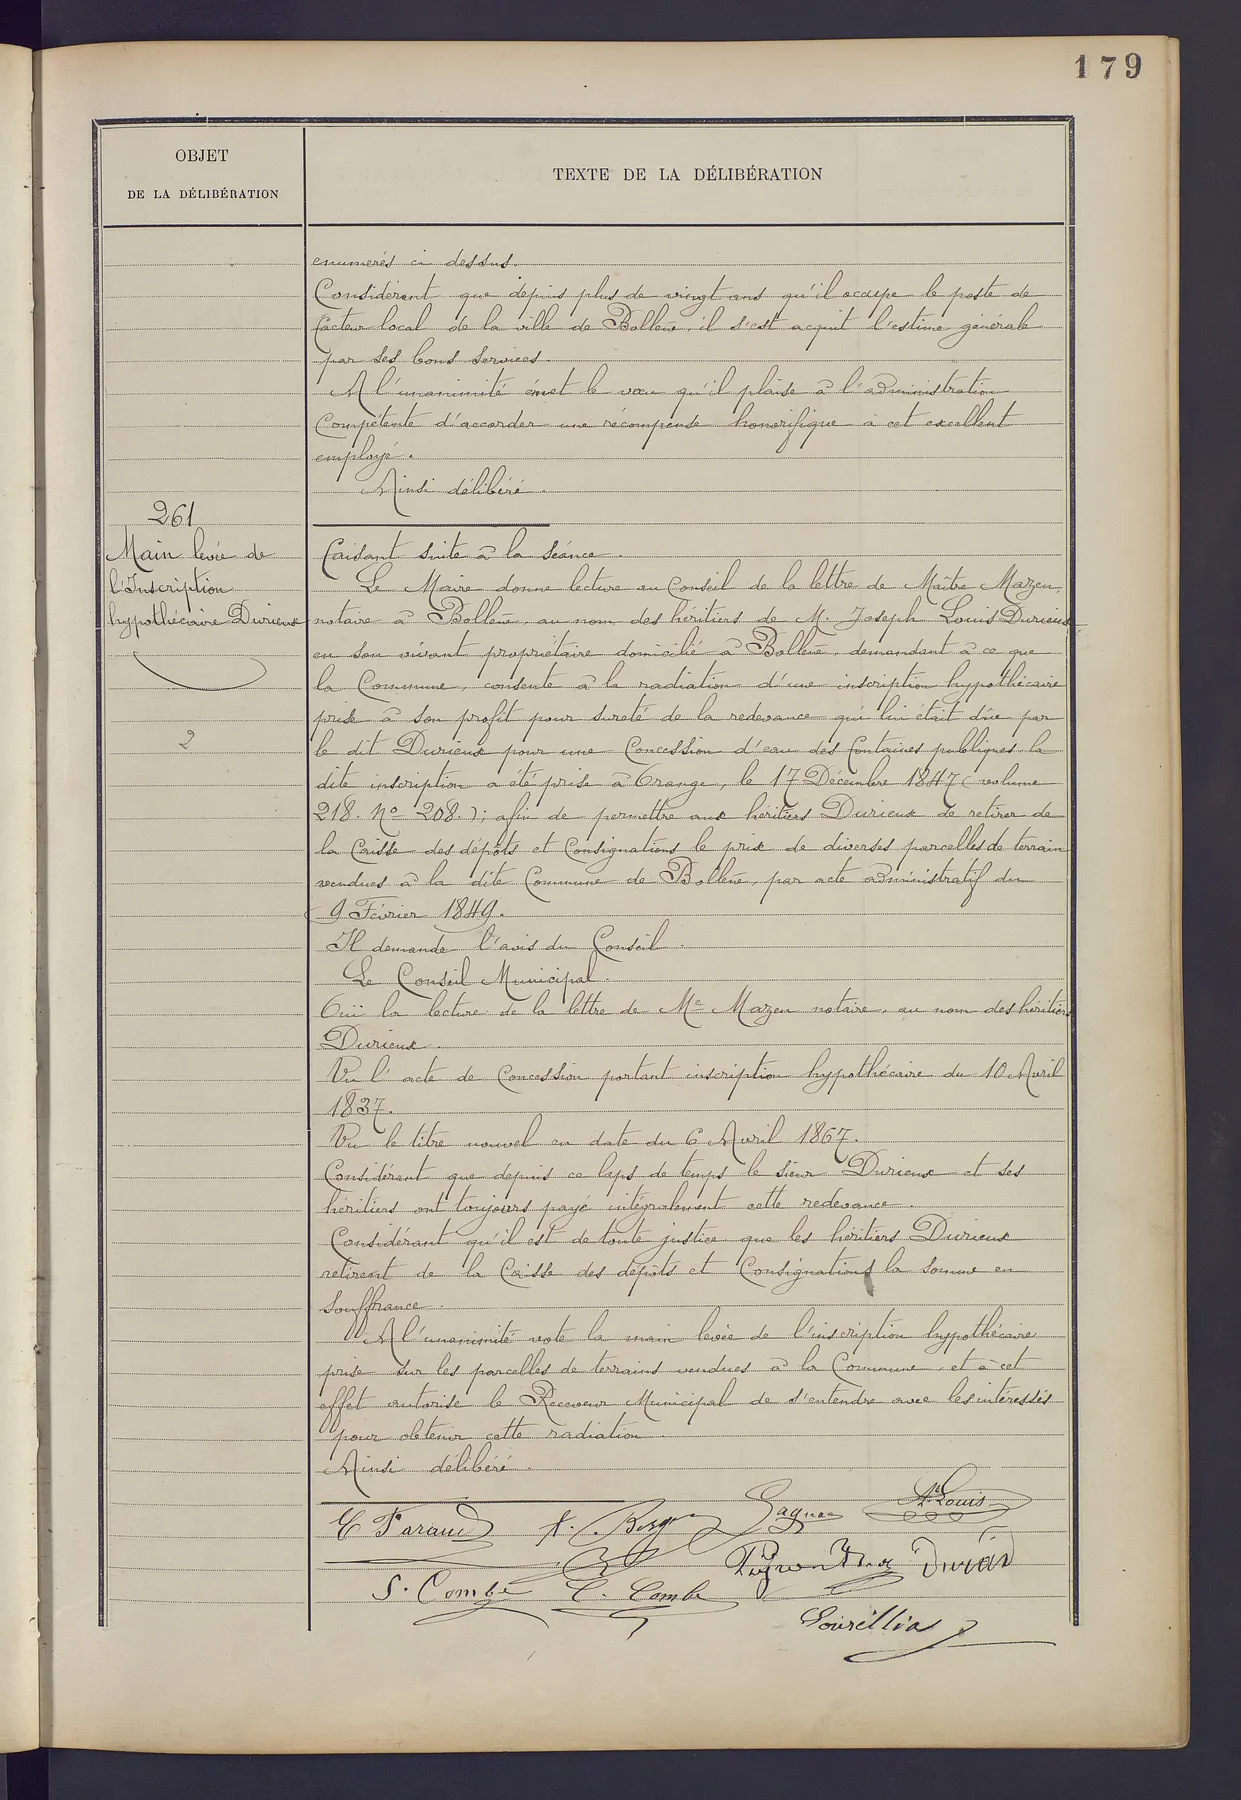 179
OBJET
DE LA DÉLIBÉRATION
TEXTE DE LA DÉLIBÉRATION
enumerés ci dessus.
Considérant que depuis plus de vingt ans qu'il occupe le poste de
facteur local de la ville de Bollène, il s'est acquit l'estime générale
par ses bons services.
A l'unanimité émet le vœu qu'il plaise à l'administration
Compétente d'accorder une récompense honorifique à cet excellent
employé.
Ainsi délibéré.
261
Main levée de
l'Inscription
hypothécaire Durieux
2
Faisant suite à la séance.
Le Maire donne lecture au Conseil de la lettre de Maître Mazen,
notaire à Bollène, au nom des héritiers de M. Joseph Louis Durieux
en son vivant propriétaire domicilié à Bollène, demandant à ce que
la Commune, consente à la radiation d'une inscription hypothécaire
prise à son profit pour sureté de la redevance qui lui était dûe par
le dit Durieux pour une Concession d'eau des fontaines publiques la
dite inscription a été prise à Orange, le 17 Décembre 1847 (volume
218. No 208.); afin de permettre aux héritiers Durieux de retirer de
la Caisse des dépôts et Consignations le prix de diverses parcelles de terrain
vendues à la dite Commune de Bollène, par acte administratif du
9 Février 1849.
Il demande l'avis du Conseil.
Le Conseil Municipal.
Ouï la lecture de la lettre de Me Mazen notaire, au nom des héritiers
Durieux.
Vu l'acte de Concession portant inscription hypothécaire du 10 Avril
1837.
Vu le titre nouvel en date du 6 Avril 1867.
Considérant que depuis ce laps de temps le sieur Durieux et ses
héritiers ont toujours payé intégralement cette redevance.
Considérant qu'il est de toute justice que les héritiers Durieux
retirent de la Caisse des dépôts et Consignations la somme en
souffrance.
A l'unanimité vote la main levée de l'inscription hypothécaire
prise sur les parcelles de terrains vendues à la Commune, et à cet
effet autorise le Receveur Municipal de s'entendre avec les intéressés
pour obtenir cette radiation.
Ainsi délibéré.
E Faraud
Gagnan
St Louis
S. Combe
C. Combe